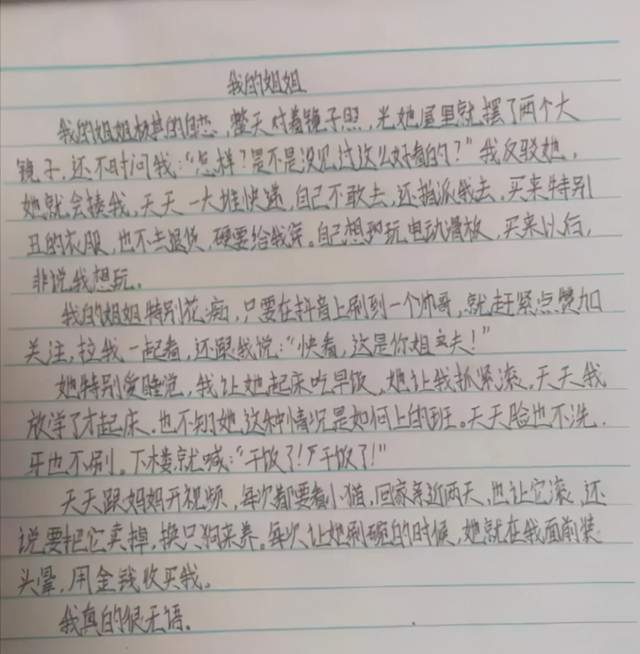 我的姐姐
我的姐姐极其的自恋，整天对着镜子照，光她屋里就摆了两个大
镜子，还不时问我："怎样？是不是没见过这么好看的？"我反驳她，
她就会揍我，天天一大堆快递，自己不敢去，还指派我去，买来特别
丑的衣服，也不去退货，硬要给我穿。自己想玩电动滑板，买来以后，
非说我想玩。
我的姐姐特别花痴，只要在抖音上刷到一个帅哥，就赶紧点赞加
关注，拉我一起看，还跟我说："快看，这是你姐丈夫！"
她特别爱睡觉，我让她起床吃早饭，她让我抓紧滚，天天我
放学了才起床，也不知她这种情况是如何上的班。天天脸也不洗，
牙也不刷。下楼就喊："干饭了！干饭了！"
天天跟妈妈开视频，每次都要看小猫，回家亲近两天，也让它滚，还
说要把它卖掉，换只狗来养。每次让她刷碗的时候，她就在我面前装
头晕，用金钱收买我。
我真的很无语。